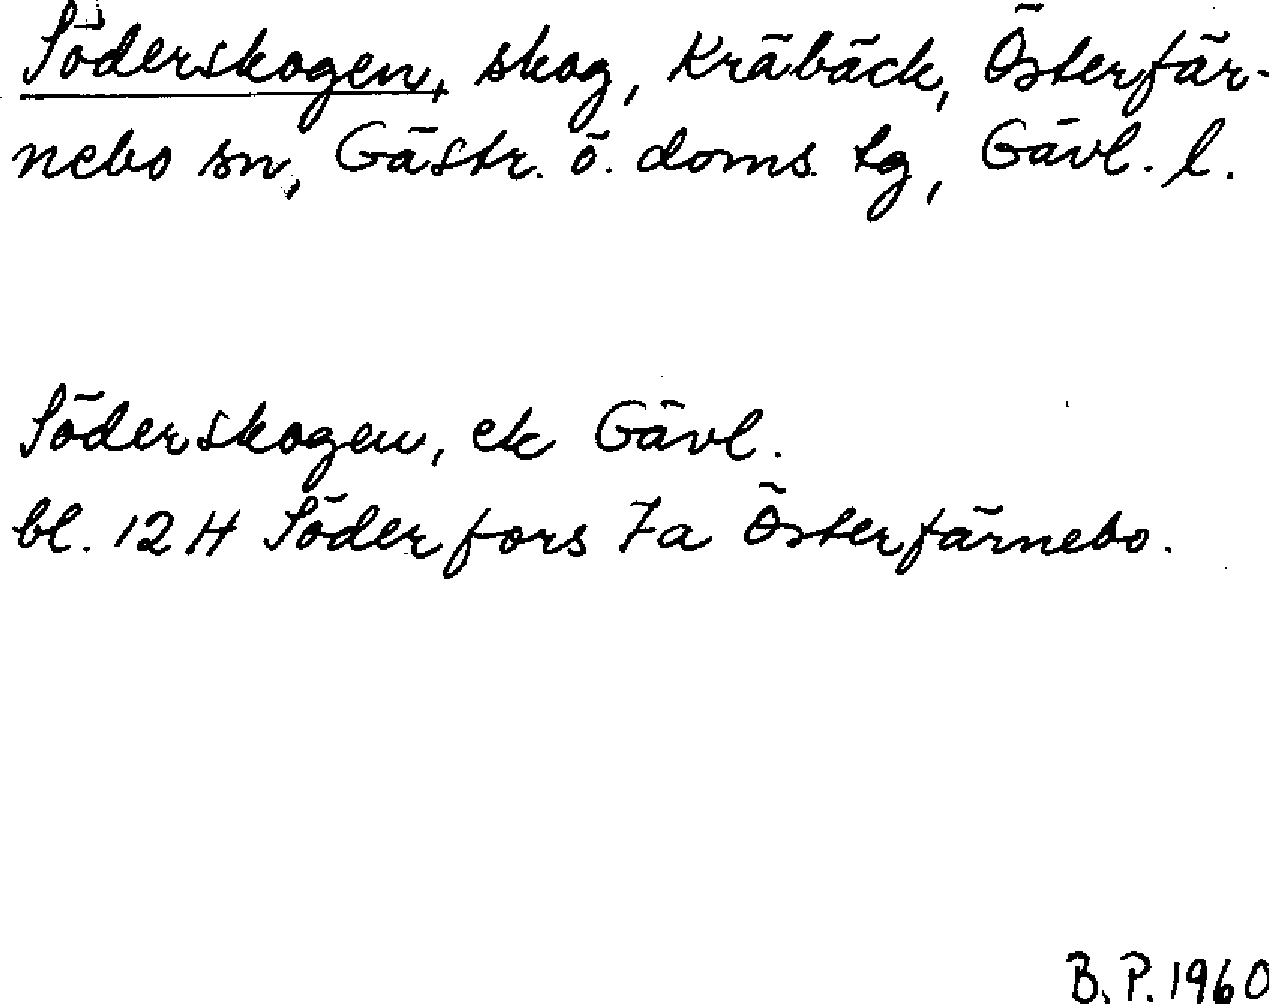 Söderskogen, skog, Kräbäck, Österfär-
nebo sn, Gästr. ö. doms. tg, Gävl. l.
Söderskogen, ek Gävl.
bl. 12 H Söderfors 7a Österfärnebo.
B.P. 1960